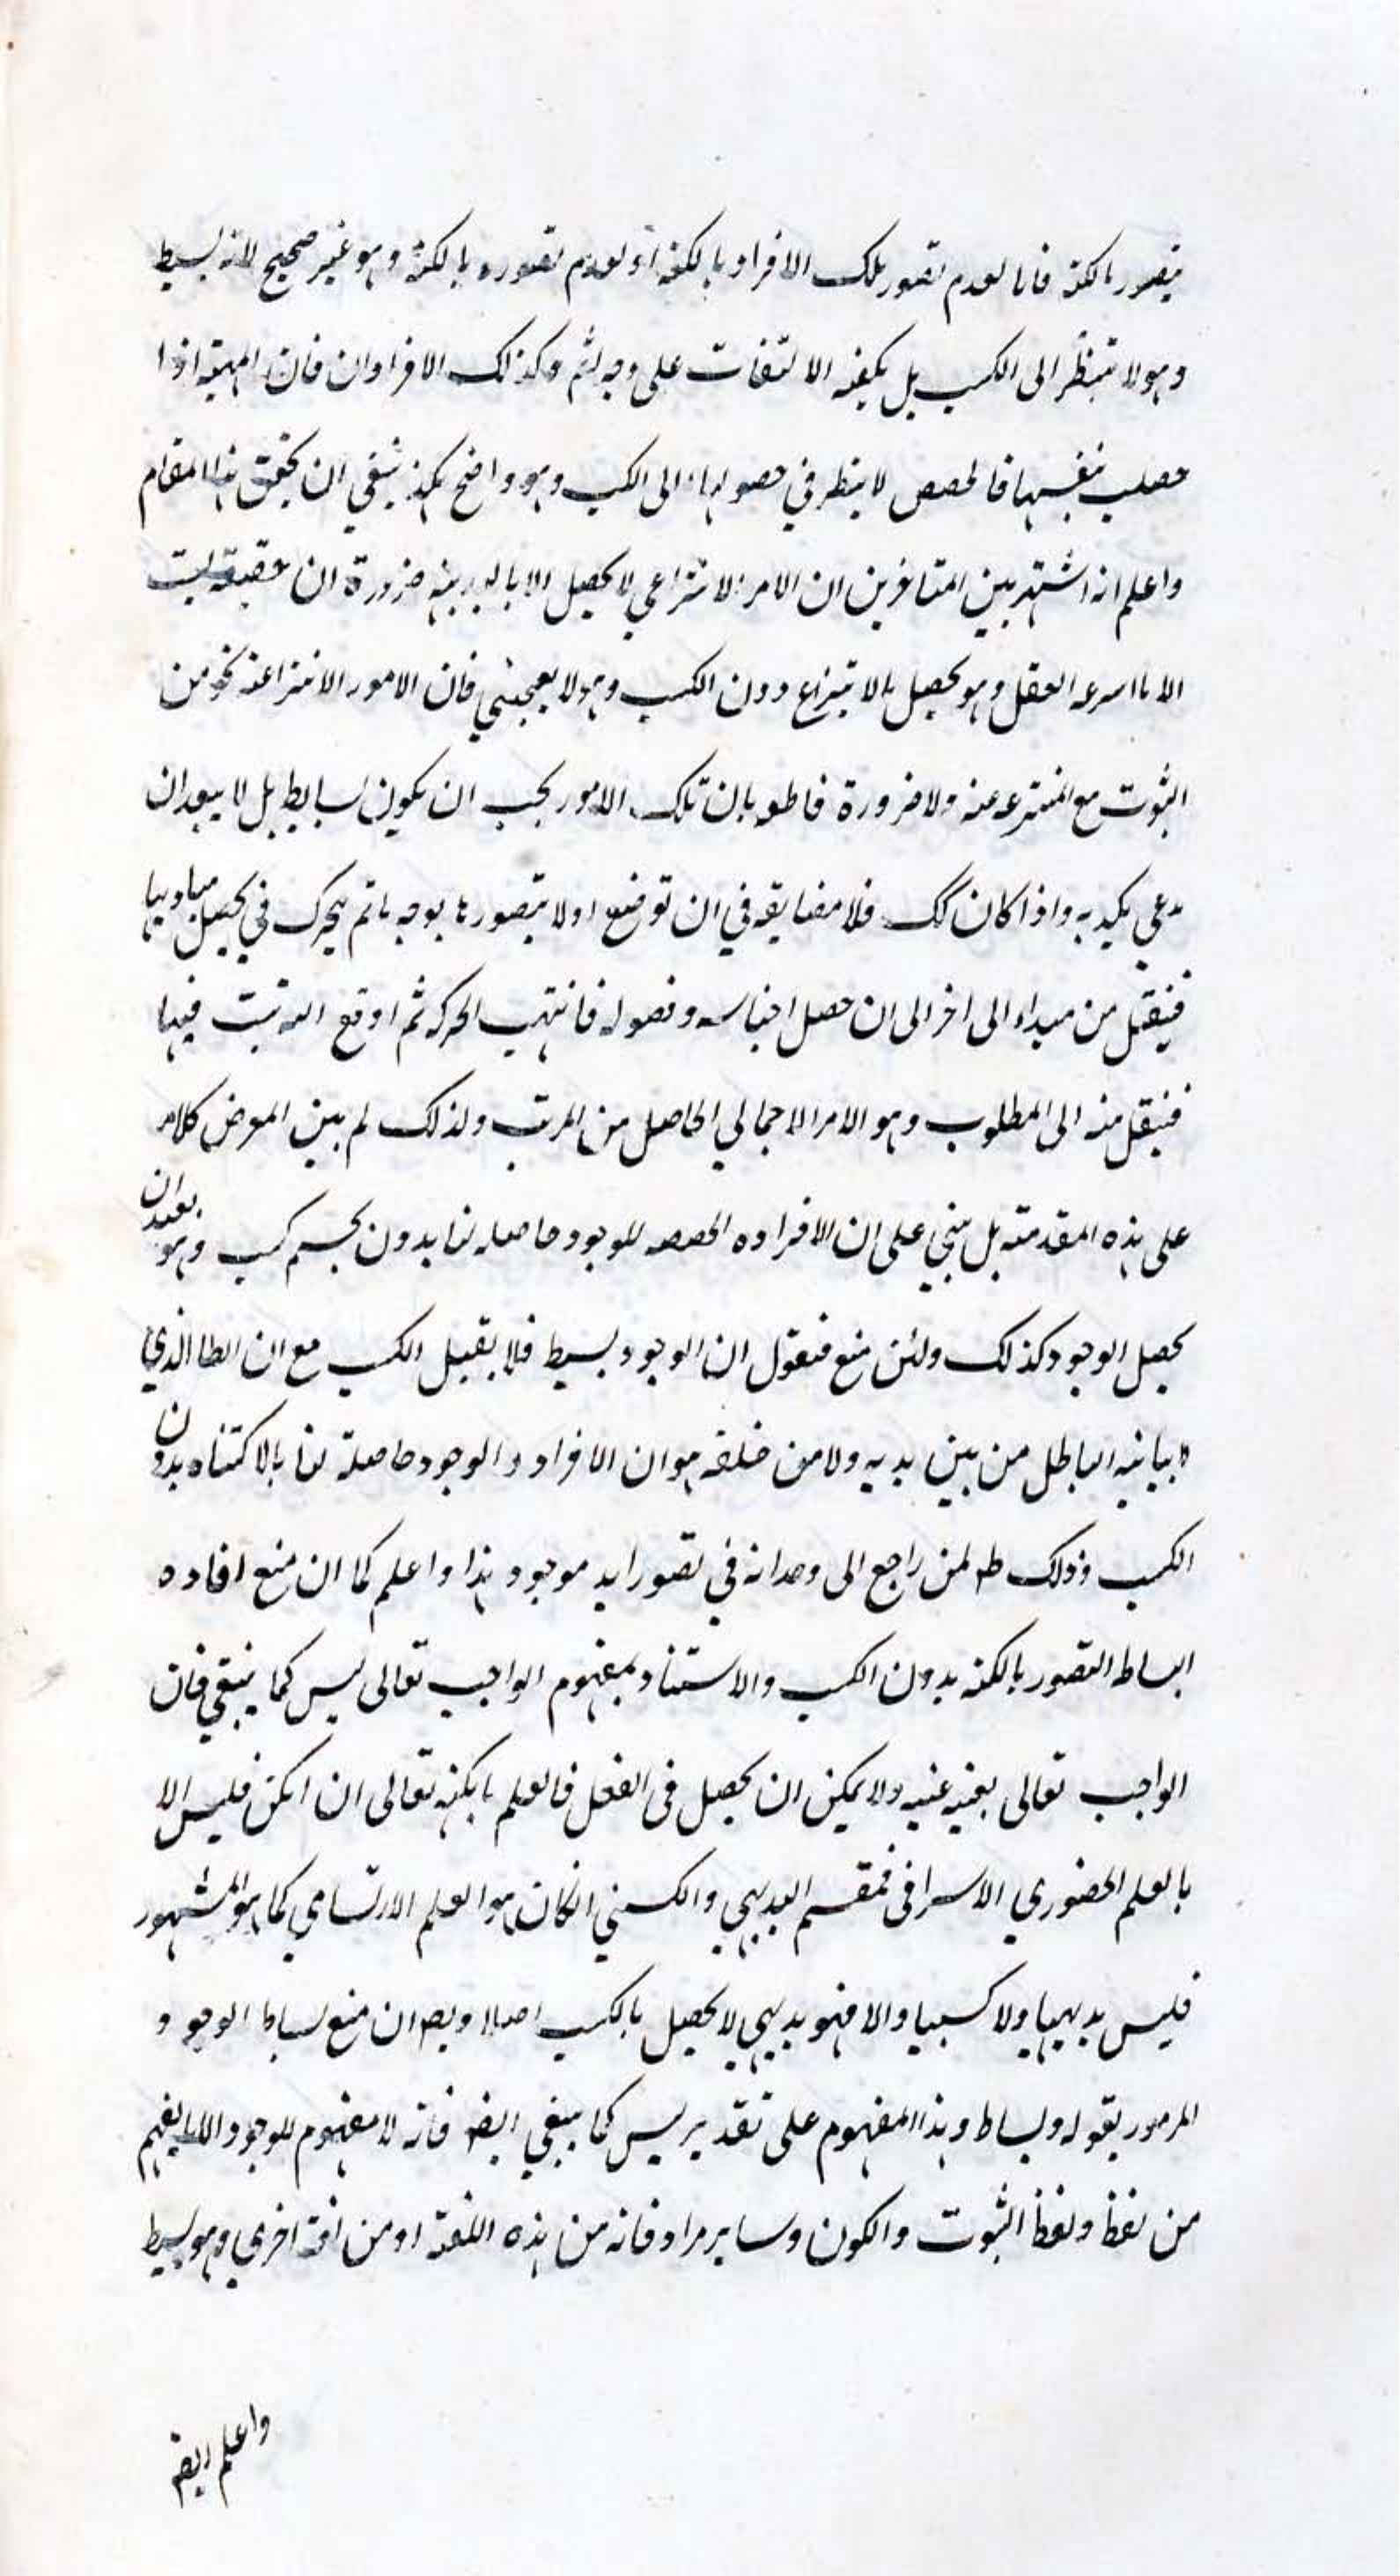 يتصور بالكنه فاما لعدم تصور تلك الافراد بالكنه او لعدم تصوره بالكنه وهو غير صحيح لانه بسيط
وهو لا ينظر الى الكسب بل يكفيه الالتفات على وجه اتم وكذلك الافراد ان فان المهية اذا
حصلت بنفسها فالحصص لا ينظر في حصولها الى الكسب وهو واضح هكذا ينبغي ان يحقق هذا المقام
واعلم انه اشتهر بين المتاخرين ان الامر الانتزاعي لا يحصل الا بالبديهة ضرورة ان حقيقة ليست
الا ما انتزعه العقل وهو يحصل بالانتزاع دون الكسب وهو لا يعجبني فان الامور الانتزاعية نحو من
الثبوت مع المنتزعة عنه ولا ضرورة بان تلك الامور يجب ان يكون بسايط بل لا يبعد ان
يدعي واذا كان كك فلا مضايقة في ان توضع اولا يتصورها بوجه ما ثم يتحرك في تحصيل مباديها
فينتقل من مبداء الى اخر الى ان حصل اجناسه وفصوله فانتهت الحركة ثم اوقع الترتيب فيها
فينتقل منه الى المطلوب وهو الامر الاجمالي الحاصل من المرتب ولذلك لم يبن المورض كلامه
على هذه المقدمة بل بني على ان الافراده الحصصه للوجود حاصله لنا بدون تجسم كسب وهو بعيد ان
يحصل الوجود كذلك ولئن منع فنقول ان الوجود بسيط فلا يقبل الكسب مع ان الظا الذي
لا ياتيه الباطل من بين يديه ولا من خلفه هو ان الافراد والوجود حاصلة لنا بالاكتناه بدون
الكسب وذلك ظه لمن راجع الى وجدانه في تصور ايد موجود هذا واعلم كما ان منع افاده
البساط التصور بالكنه بدون الكسب والاستناد بمفهوم الواجب تعالى ليس كما ينبغي فان
الواجب تعالى بعينه عينيه ولا يمكن ان يحصل في العقل فالعلم بالكنه تعالى ان امكن فليس الا
بالعلم الحضوري الاشراقي فمقسم البديهي والكسبي انكان هو العلم الارتسامي كما هو المشهور
فليس بديهيا ولا كسبيا والا فهو بديهي لا يحصل بالكسب اصلا ويصه ان منع بساط الوجود و
المرموز بقوله وبساط وهذا المفهوم على تقدير ليس كما ينبغي ايضه فانه لا مفهوم للوجود الا ما يفهم
من لفظ ولفظ الثبوت والكون وساير مرادفاته من هذه اللغة او من لغة اخرى وهو بسيط
واعلم ايضه